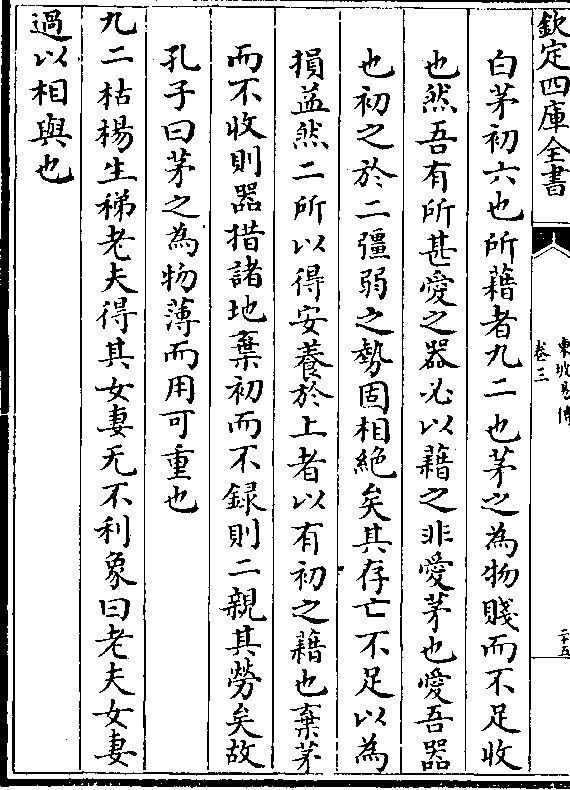 欽定四庫全書
東坡易傳
卷三
二十五
白茅初六也所藉者九二也茅之為物賤而不足收
也然吾有所甚愛之器必以藉之非愛茅也愛吾器
也初之於二彊弱之勢固相絶矣其存亡不足以為
損益然二所以得安養於上者以有初之藉也棄茅
而不收則器措諸地棄初而不録則二親其勞矣故
孔子曰茅之為物薄而用可重也
九二枯楊生稊老夫得其女妻无不利象曰老夫女妻
過以相與也